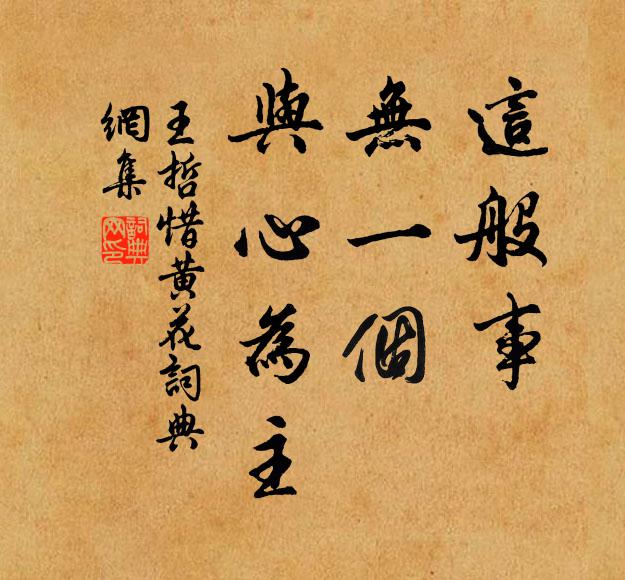 這般事
無一個
與心為主
王哲惜黃花詞典
網集
詞典
网印